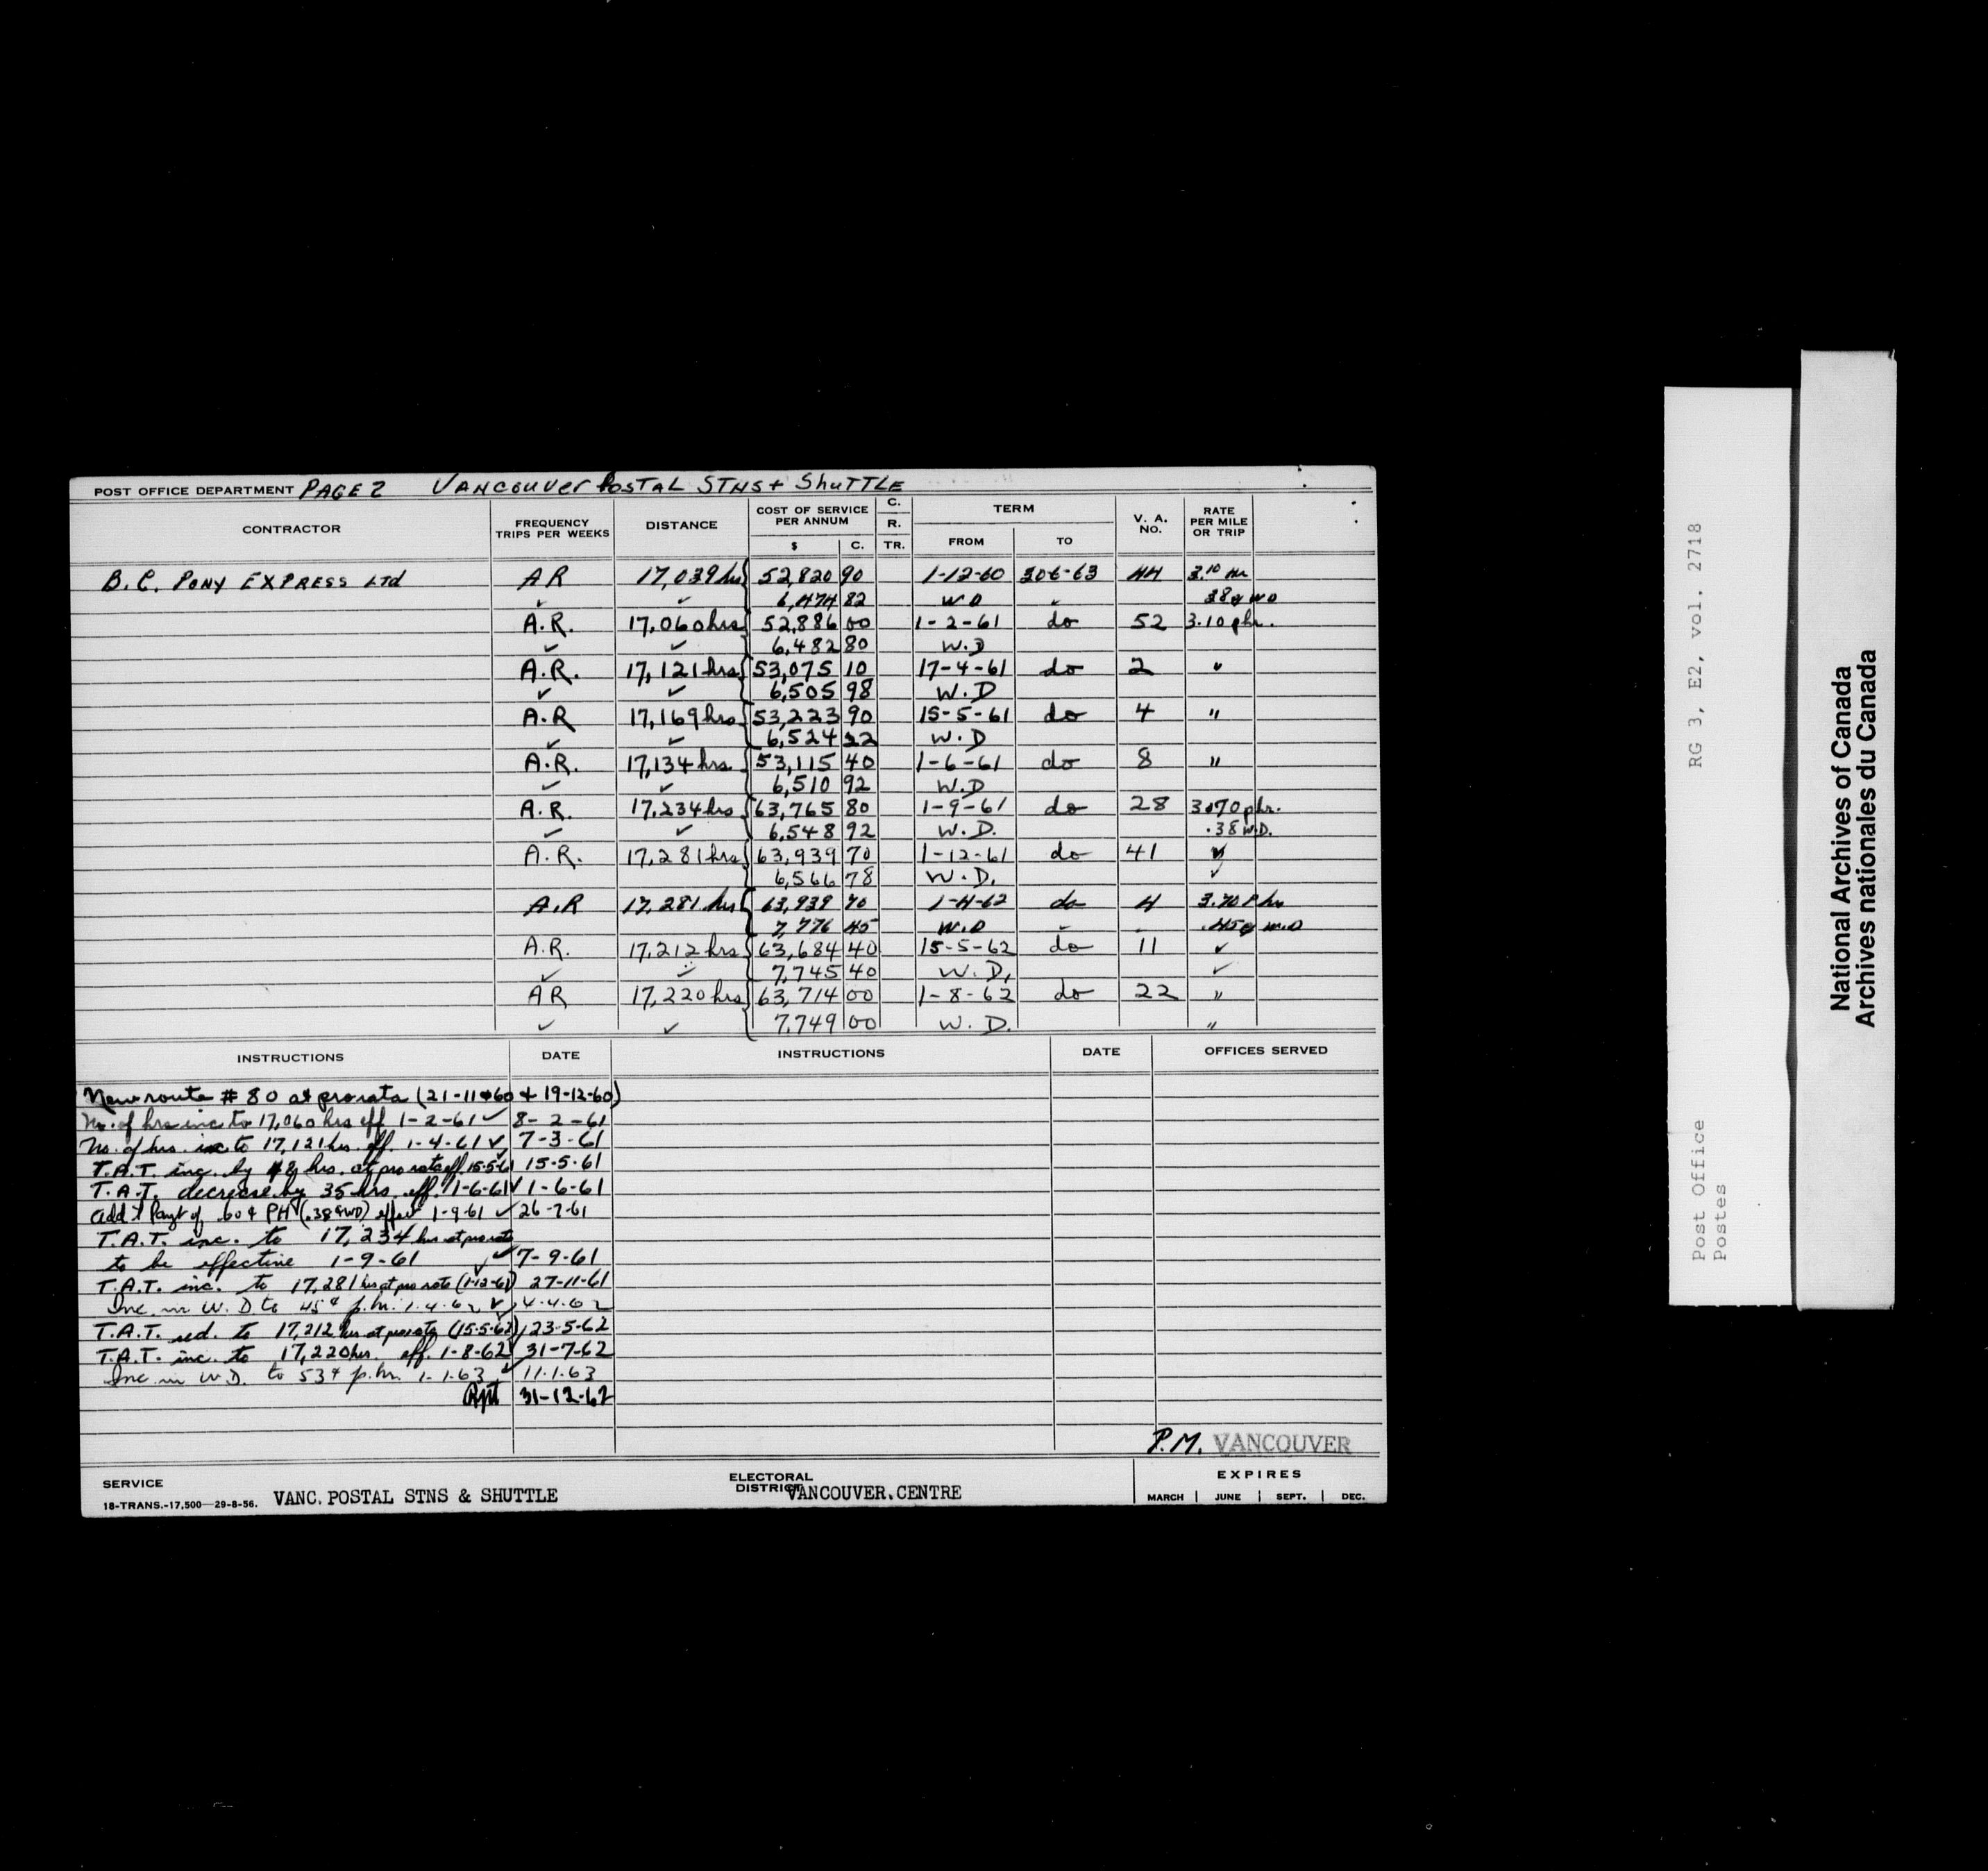 POST OFFICE DEPARTMENT PAGE 2 VANCOUVER POSTAL STNS + SHUTTLE
CONTRACTOR FREQUENCY TRIPS PER WEEKS DISTANCE COST OF SERVICE PER ANNUM $ C. C. R. TR. TERM FROM TO V. A. NO. RATE PER MILE OR TRIP
B.C. PONY EXPRESS LTD AR 17,039 hrs 52,820 90 1-12-60 30-6-63 44 3.10 Hr
✓ ✓ 6,474 82 W D ✓ 38¢ WD
A.R. 17,060 hrs 52,886 00 1-2-61 do 52 3.10 phr.
✓ ✓ 6,482 80 W.D
A.R. 17,121 hrs 53,075 10 17-4-61 do 2 "
✓ ✓ 6,505 98 W.D
A.R 17,169 hrs 53,223 90 15-5-61 do 4 "
✓ ✓ 6,524 22 W.D
A.R. 17,134 hrs 53,115 40 1-6-61 do 8 "
✓ ✓ 6,510 92 W.D
A.R. 17,234 hrs 63,765 80 1-9-61 do 28 3.70 phr.
✓ ✓ 6,548 92 W.D. .38 W.D.
A.R. 17,281 hrs 63,939 70 1-12-61 do 41 ✓
6,566 78 W.D. ✓
A.R 17,281 hrs 63,939 70 1-4-62 do 4 3.70 P hr
7,776 45 W.D .45¢ W.D
A.R. 17,212 hrs 63,684 40 15-5-62 do 11 ✓
✓ ✓ 7,745 40 W.D. ✓
AR 17,220 hrs 63,714 00 1-8-62 do 22 "
✓ ✓ 7,749 00 W.D. "
INSTRUCTIONS DATE INSTRUCTIONS DATE OFFICES SERVED
New route # 80 at prorata (21-11-60 & 19-12-60)
No. of hrs inc to 17,060 hrs eff 1-2-61 ✓ 8-2-61
No. of hrs. inc to 17,121 hrs. eff. 1-4-61 ✓ 7-3-61
T.A.T. inc. by 48 hrs. at pro rata eff. 15-5-61 15-5-61
T.A.T. decrease by 35 hrs. eff. 1-6-61 ✓ 1-6-61
Add'l Paymt of .60¢ PH (.38¢ WD) effect 1-9-61 ✓ 26-7-61
T.A.T. inc. to 17,234 hrs at prorata
to be effective 1-9-61 ✓ 7-9-61
T.A.T. inc. to 17,281 hrs at pro rata (1-12-61) 27-11-61
Inc. in W.D. to 45¢ p.hr. 1.4.62 ✓ 4.4.62
T.A.T. red. to 17,212 hrs at prorata (15-5-62) 23-5-62
T.A.T. inc. to 17,220 hrs. eff. 1-8-62 31-7-62
Inc. in W.D. to 53¢ p.hr. 1-1-63 ✓ 11.1.63
31-12-62
P.M. VANCOUVER
SERVICE VANC. POSTAL STNS & SHUTTLE ELECTORAL DISTRICT VANCOUVER.CENTRE EXPIRES
18-TRANS.-17,500—29-8-56. MARCH JUNE SEPT. DEC.
RG 3, E2, vol. 2718
Post Office
Postes
National Archives of Canada
Archives nationales du Canada